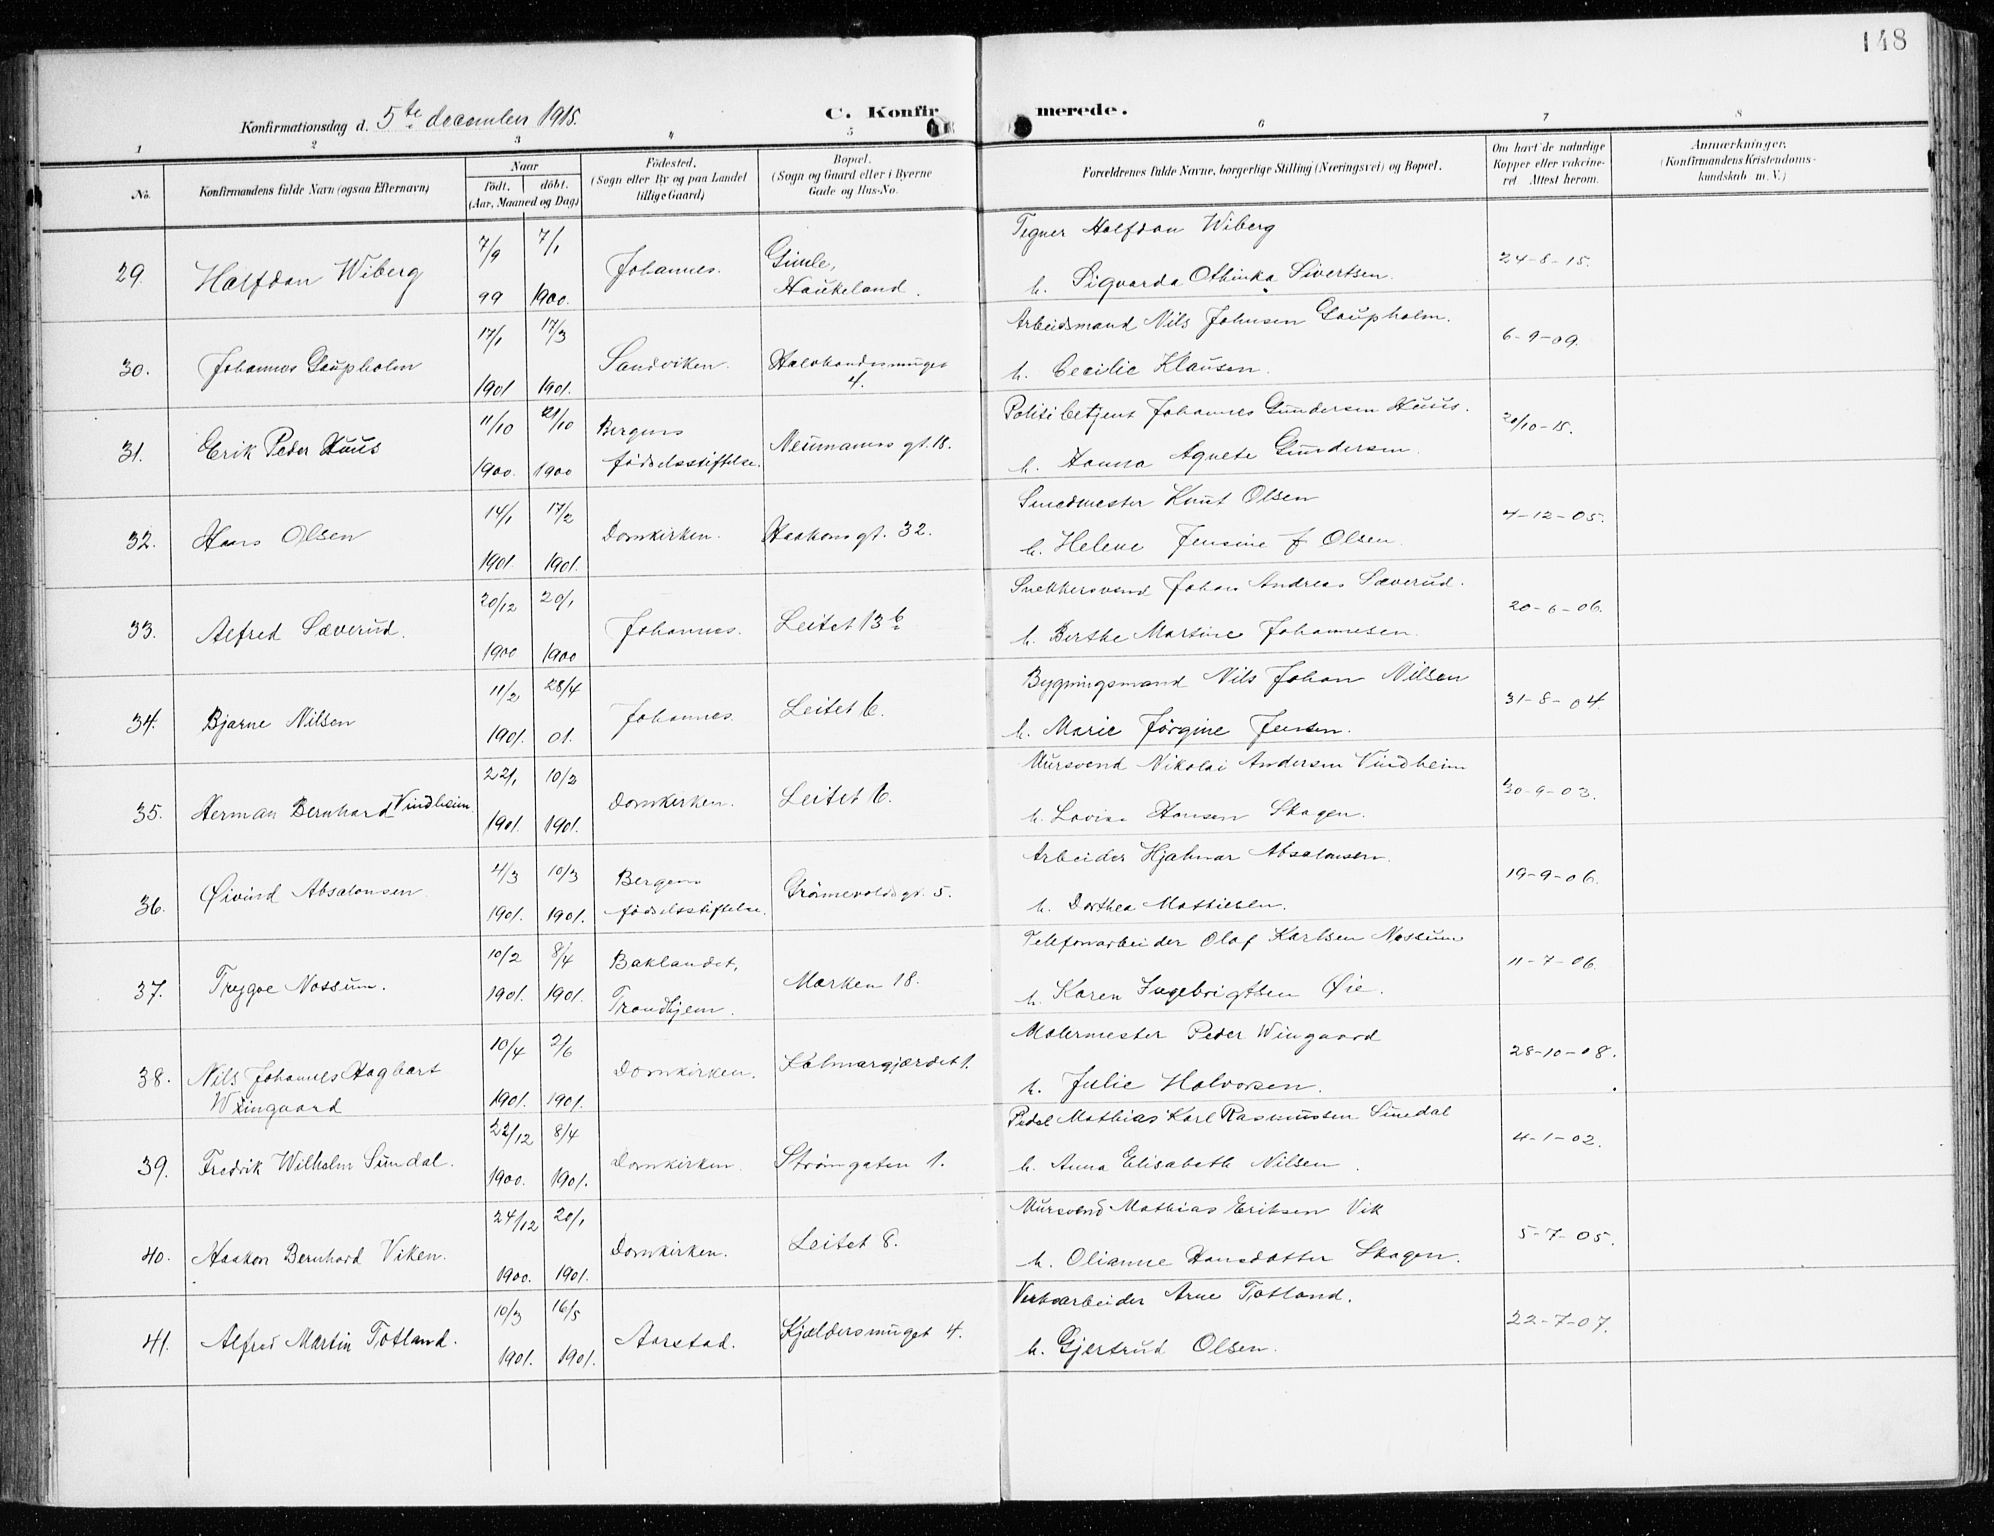 148
Konfirmationsdag d. 5te december 1915.
C. Konfirmerede.
1 2 3 4 5 6 7 8
No.
Konfirmandens fulde Navn (ogsaa Efternavn)
Naar
født. døbt.
(Aar, Maaned og Dag)
Fødested.
(Sogn eller By og paa Landet
tillige Gaard)
Bopæl.
(Sogn og Gaard eller i Byerne
Gade og Hus-No.
Forældrenes fulde Navne, borgerlige Stilling (Næringsvei) og Bopæl.
Om havt de naturlige
Kopper eller vakcine-
ret Attest herom.
Anmærkninger.
(Konfirmandens Kristendoms-
kundskab m. V.)
29. Halfdan Wiberg 7/9 99 7/1 1900. Johannes. Gimle, Haukeland.
Tegner Halfdan Wiberg
h. Sigvarda Othinka Sivertsen. 24-8-15.
30. Johannes Gaupholm 17/1 1901 17/3 1901. Sandviken. 4.
Arbeidsmand Nils Johnsen Gaupholm.
h. Cecilie Klausen. 6-9-09.
31. Erik Peder Huus 11/10 1900. 21/10 1900 Bergens fødselsstiftelse. Neumanns gt. 18.
Politibetjent Johannes Gundersen Huus.
h. Hanna Agnete Gundersen. 20/10-15.
32. Hans Olsen 14/1 1901 17/2 1901. Domkirken. Haakons gt. 32.
Smedmester Knut Olsen
h. Helene Jensine f Olsen. 4-12-05.
33. Alfred Sæverud. 20/12 1900 20/1 1900 Johannes. Leitet 13 b
Snekkersvend Johan Andreas Sæverud.
h. Berthe Martine Johannesen. 20-6-06.
34. Bjarne Nilsen 11/2 1901. 28/4 01. Johannes. Leitet 6.
Bygningsmand Nils Johan Nilsen
h. Marie Jørgine Jensen. 31-8-04.
35. Herman Bernhard Vindheim. 22/1 1901. 10/3 1901. Domkirken. Leitet 6.
Mursvend Nikolai Andersen Vindheim
h. Lovise Hansen Skagen. 30-9-03.
36. Øivind Absalonsen 4/3 1901. 10/3 1901. Bergens fødselsstiftelse. 5.
Arbeider Hjalmar Absalonsen.
h. Dorthea Mathiesen. 19-9-06.
37. Trygve Nossum. 10/2 1901. 8/4 1901. Baklandet, Trondhjem. Marken 18.
Telefonarbeider Olaf Karlsen Nossum
h. Karen Ingebrigtsen Øie. 11-7-06.
38. Nils Johannes Hagbart Wingaard 10/4 1901. 2/6 1901. Domkirken. Kalmargjærdet 1.
Malermester Peder Wingaard
h. Julie Halvorsen. 28-10-08.
39. Fredrik Wilhelm Sundal. 22/12 1900. 8/4 1901. Domkirken. Strømgaten 1.
Pedel Mathias Karl Rasmussen Sundal
h. Anna Elisabeth Nilsen. 4-1-02.
40. Haakon Bernhard Viken. 24/12 1900. 20/1 1901. Domkirken. Leitet 8.
Mursvend Mathias Eriksen Vik
h. Olianne Hansdatter Skagen. 5-7-05.
41. Alfred Martin Totland. 10/3 1901. 16/5 1901. Aarstad. Kjældersmuget 4.
Verksarbeider Arne Totland.
h. Gjertrud Olsen. 22-7-07.